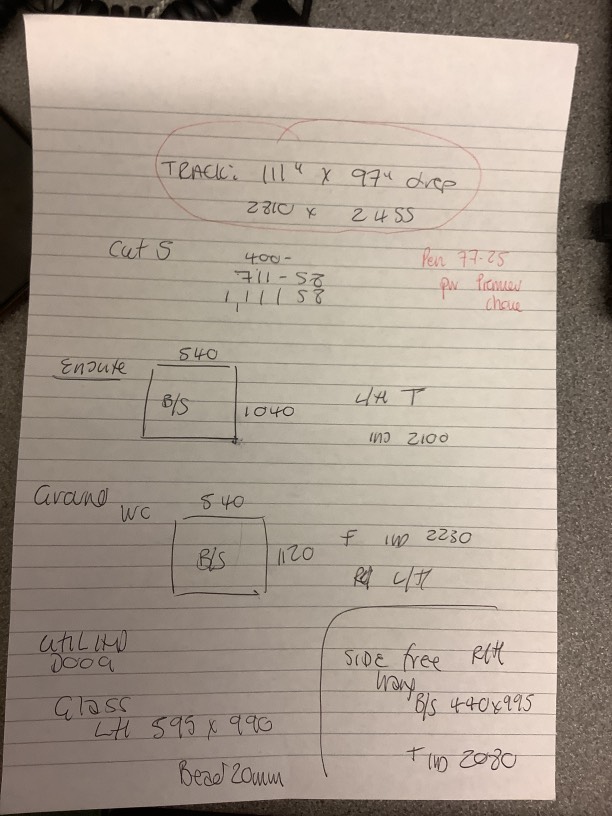 TRACK: 111" x 97" drop
2810 x 2455
Cut 5
400-
711-58
1,111 58
Pen 77-25
pw Premier
Ensuite
540
B/S
1040
L/H T
IND 2100
Ground WC
540
B/S
1120
F IND 2230
L/H
DOOR
Glass
LH 595 x 990
Bead 20mm
SIDE free R/H
B/S 440x995
T IND 2080